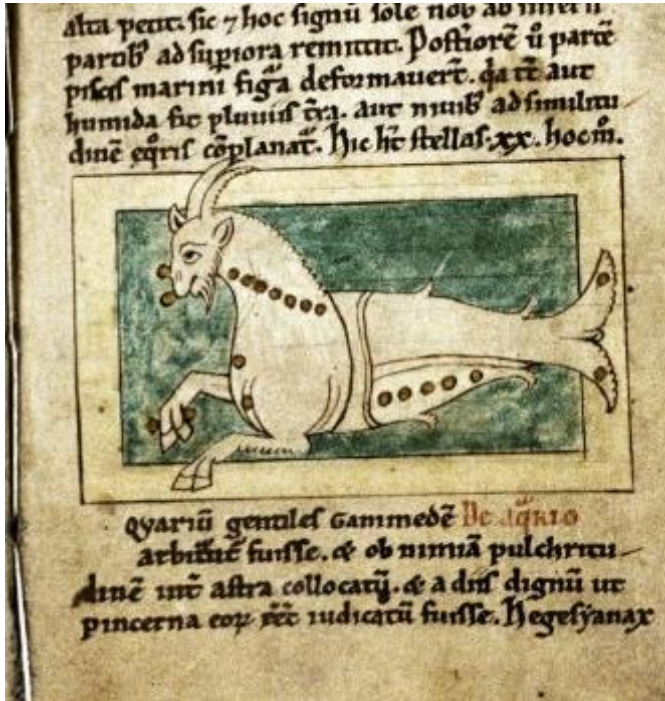 alta petit. sic ⁊ hoc signū sole nob ab
partib᷒ ad supiora remittit. Posteriorē ū partē
piscis marini figᵃ deformauert. qᵃ tē aut
humida sit pluuiis tᵉra. aut niuib᷒ ad similitu
dinē eqͦris cōplanat᷑. Hic ht stellas .xx. hoc mͦ.
qvariū gentiles Ganimedē De aqᵃrio
fuisse. & ob nimiā pulchritu
dinē int᷑ astra collocatū. & a diis dignū ut
pincerna eoꝝ iudicatū fuisse. Hegesyanax